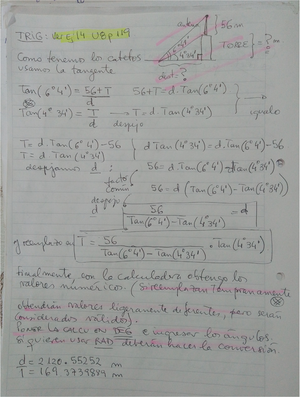 TRIG: Ver Ej 14 UBp 119
antena
56 m
TORRE = ? m
6°41'
4°34'
dist: ?
Como tenemos lo catetos
usamos la tangente.
Tan(6°41') = 56+T / d   56+T = d.Tan(6°41')
Tan(4°34') = T / d → T = d.Tan(4°34')
despejo
igualo
T = d.Tan(6°41') - 56
T = d Tan(4°34')
d Tan(4°34') = d.Tan(6°41') - 56
despejamos d:
56 = d.Tan(6°41') - d Tan(4°34')
factor común
56 = d (Tan(6°41') - Tan(4°34'))
despejo d
56 / Tan(6°41') - Tan(4°34') = d
y reemplazo en T = 56 / Tan(6°41') - Tan(4°34') . Tan(4°34')
Finalmente, con la calculadora obtengo los
valores numéricos. (Si reemplazan tempranamente
obtendrán valores ligeramente diferentes, pero serán
considerados válidos).
PONER LA CALCU EN DEG e ingresar los ángulos.
Si quieren usar RAD deberán hacer la conversión.
d = 2120.55252 m
T = 169.3739849 m